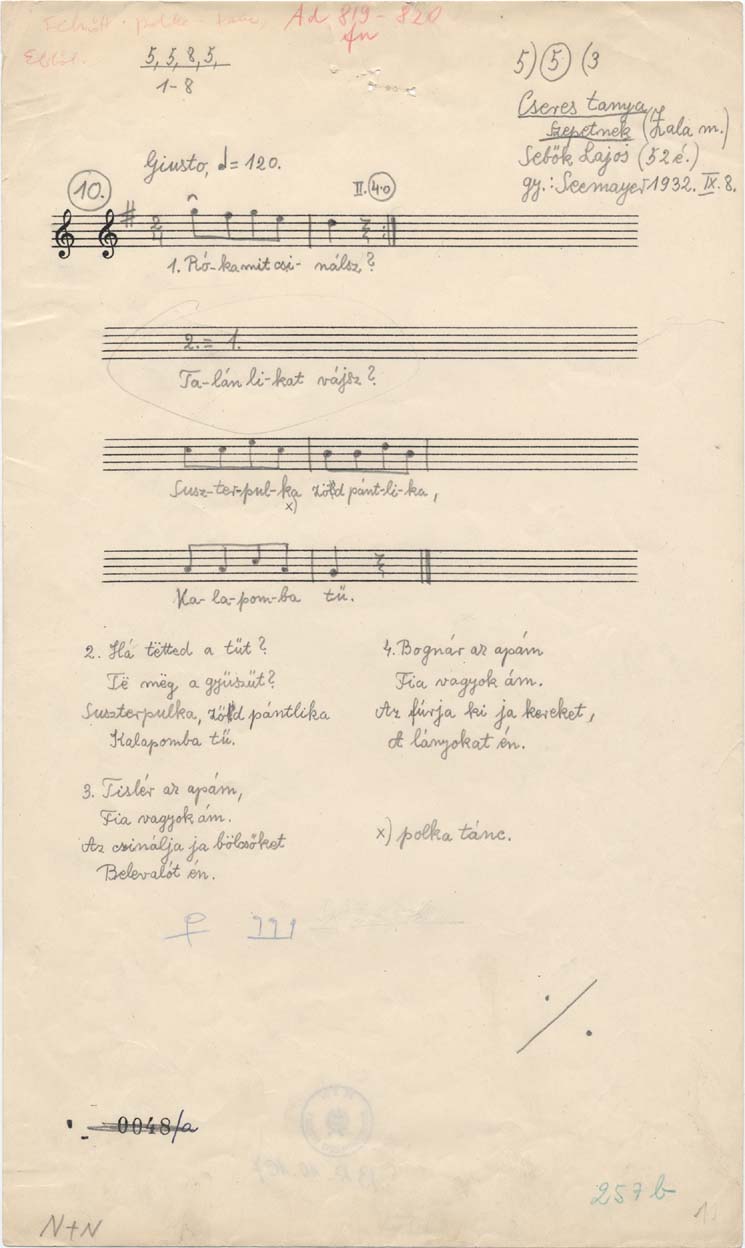 polka
Ad 819-820
5, 5, 8, 5,
1-8
5) 5 (3
Cseres tanya
Szepetnek (Zala m.)
Sebők Lajos (52 é.)
gy.: Seemayer 1932. IX. 8.
Giusto, = 120.
10.
II. 4.0
2/4
1. Ró-ka mit csi- nálsz?
2. = 1.
Ta-lán li-kat vájsz?
Susz-ter-pul-ka zöld pánt-li-ka,
x)
Ka-la-pom-ba tű.
2. Há tëtted a tűt?
Të mëg a gyűszűt?
Suszterpulka, zöld pántlika
Kalapomba tű.
3. Tislér az apám,
Fia vagyok ám.
Az csinálja ja bölcsőket
Belevalót én.
4. Bognár az apám
Fia vagyok ám.
Az fúrja ki ja kereket,
A lányokat én.
x) polka tánc.
0048/a
257 b
N+N